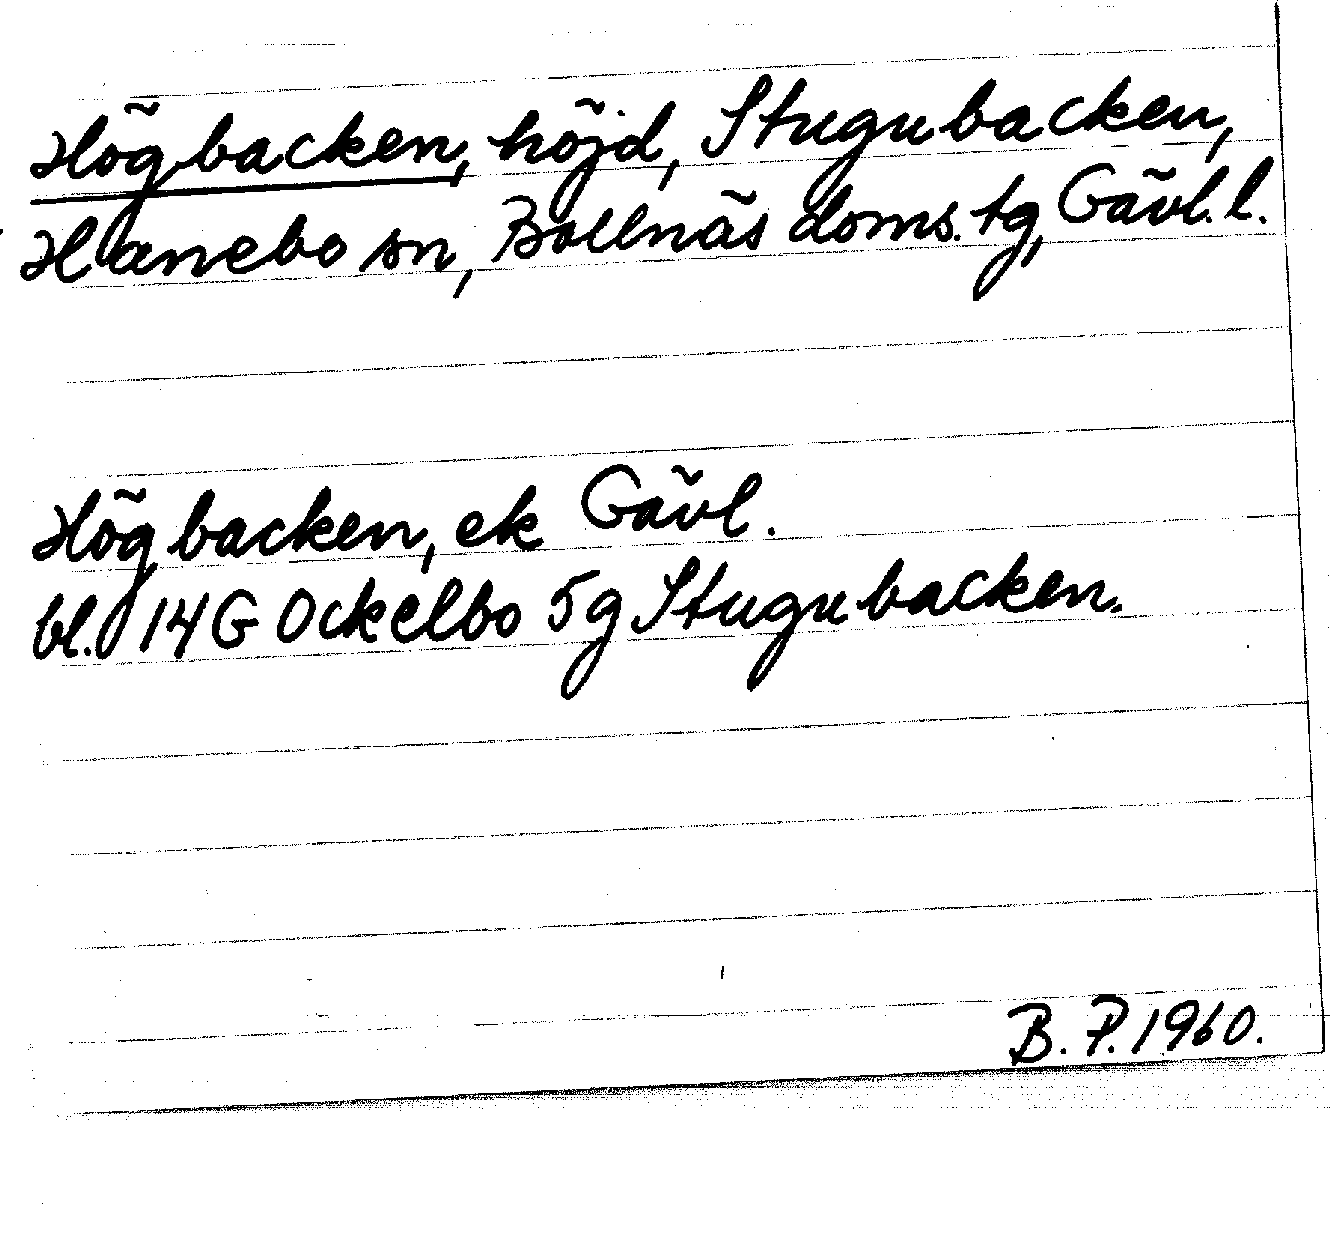 Högbacken, höjd, Stugubacken,
Hanebo sn, Bollnäs doms. tg, Gävl. l.
Högbacken, ek Gävl.
bl. 14G Ockelbo 5g Stugubacken.
B. P. 1960.